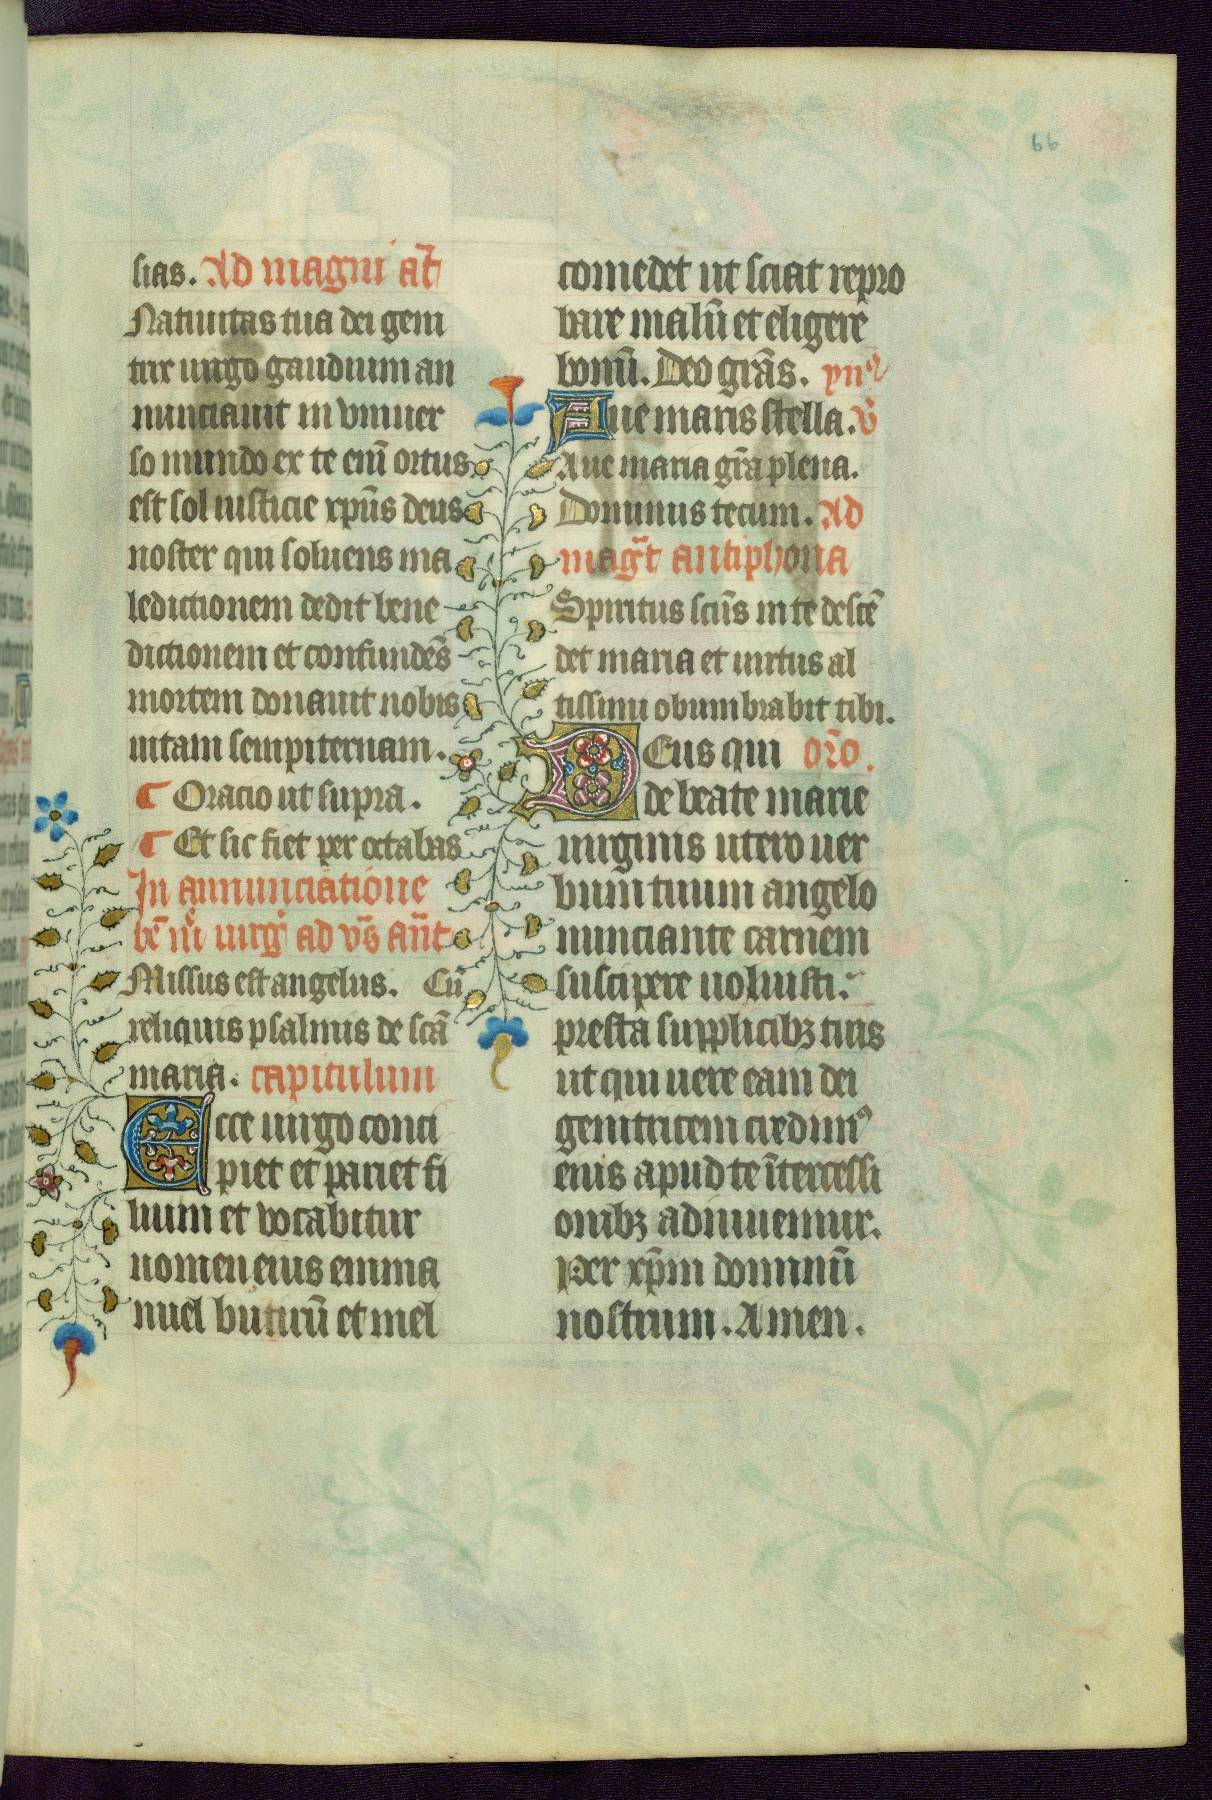 66
sias. Ad magni at̄
Natiuitas tua dei geni
trix uirgo gaudium an
nunciauit in vniuer
so mundo ex te enī ortus
est sol iusticie xp̄us deus
noster qui soluens ma
ledictionem dedit bene
dictionem et confundēs
mortem donauit nobis
uitam sempiternam.
Oracio ut supra.
Et sic fiet per octabas
In annunciatione
bē mͬi uirg̾ ad vs̄ an̄t
Missus est angelus. Cū
reliquis psalmis de scā
maria. capitulum
Ecce uirgo conci
piet et pariet fi
lium et vocabitur
nomen eius emma
nuel butirū et mel
comedet ut sciat repro
bare malū et eligere
bonū. Deo grās. ymꝰ
Aue maris stella. v̄
Aue maria grā plena.
Dominus tecum. Ad
magt̄ antiphona
Spiritus scūs in te descē
det maria et uirtus al
tissimi obumbrabit tibi.
Deus qui or̄o.
de beate marie
uirginis utero uer
bum tuum angelo
nunciante carnem
suscipere uoluisti.
presta supplicibꝫ tuis
ut qui uere eam dei
genitricem credimꝰ
eius apud te ītercessi
onibꝫ adiuuemur.
Per xp̄m dominū
nostrum. Amen.